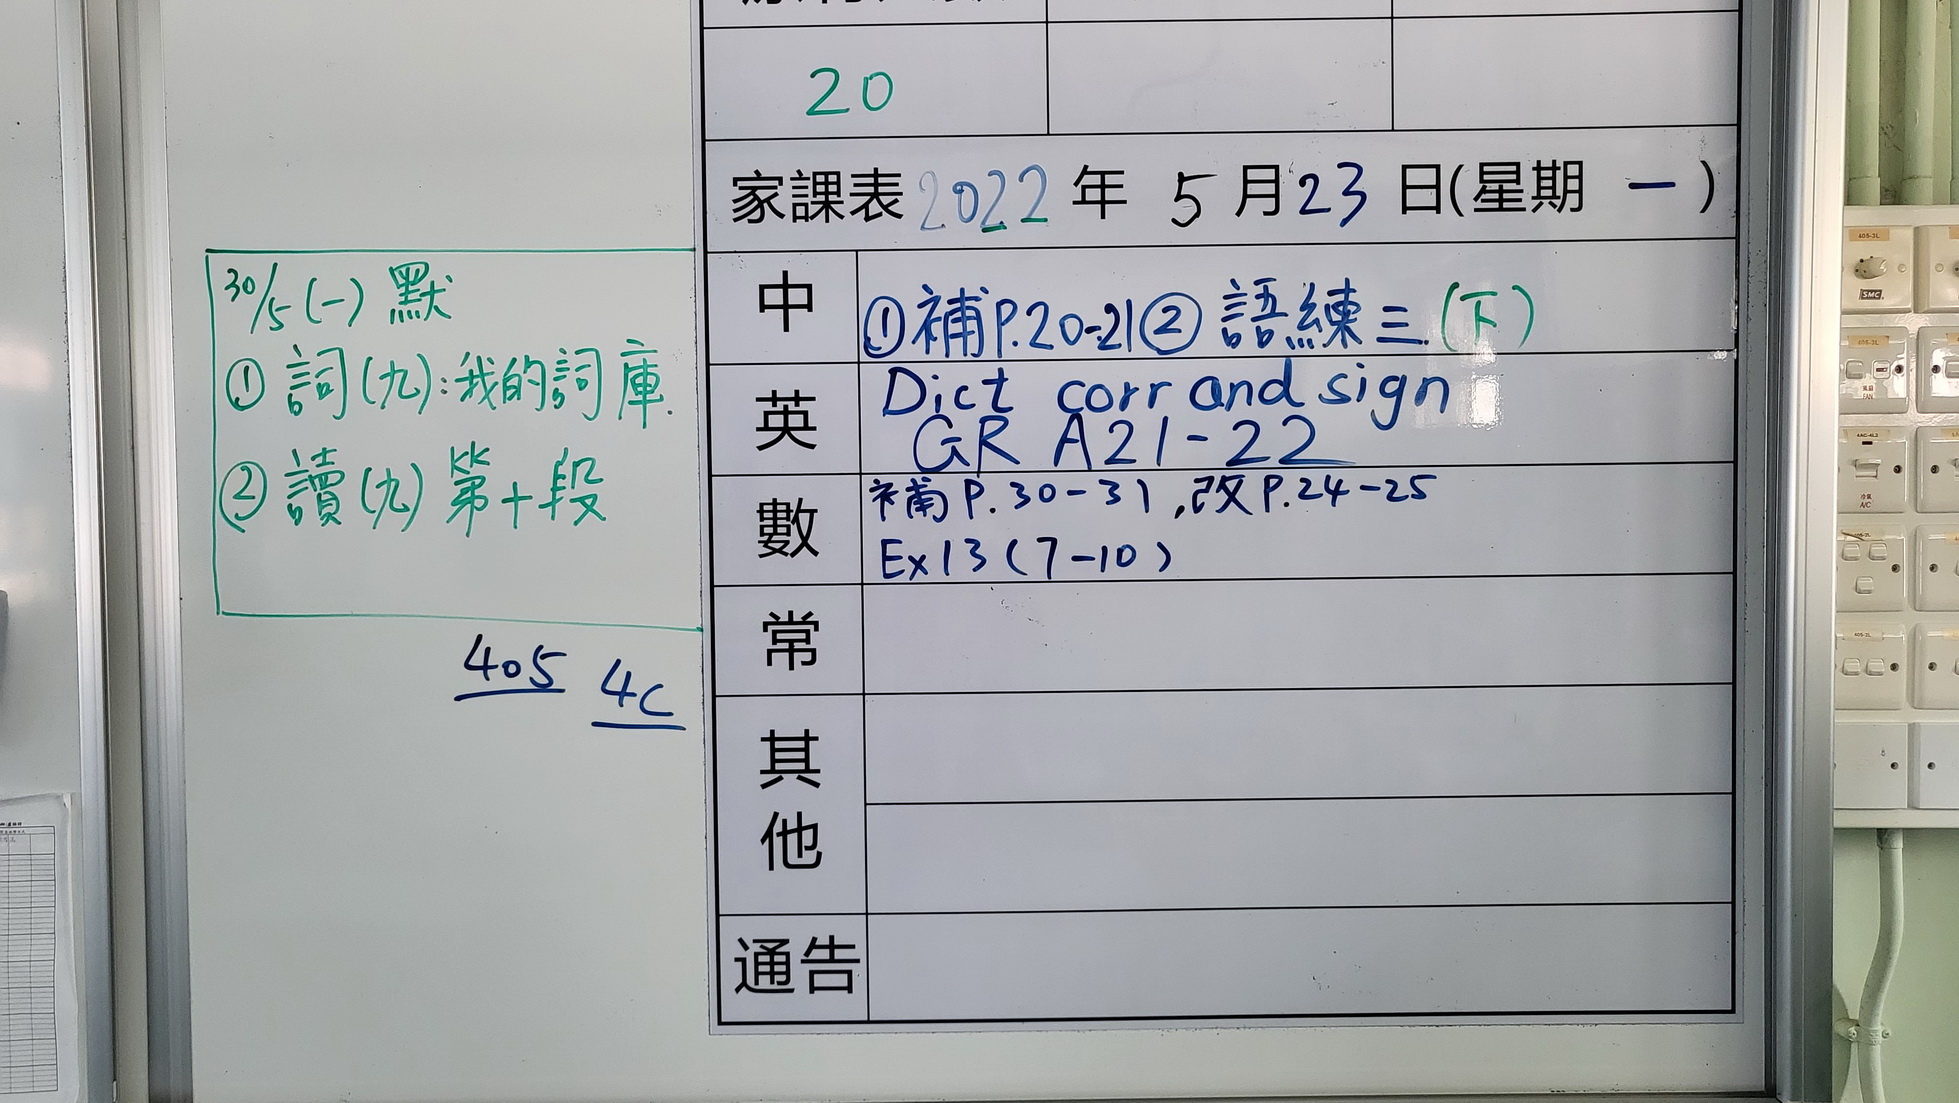 20
家課表 2022 年 5 月 23 日(星期 一 )
30/5 (一) 默
① 詞(九):我的詞庫.
② 讀(九) 第十段
405 4C
中
①補P.20-21② 語練三.(下)
英
Dict corr and sign
GR A21-22
數
補P.30-31,改P.24-25
Ex13(7-10)
常
其他
通告
SMC